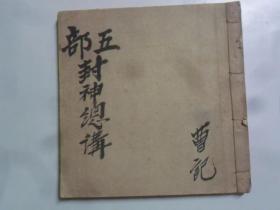 五部
封神總講
曹記